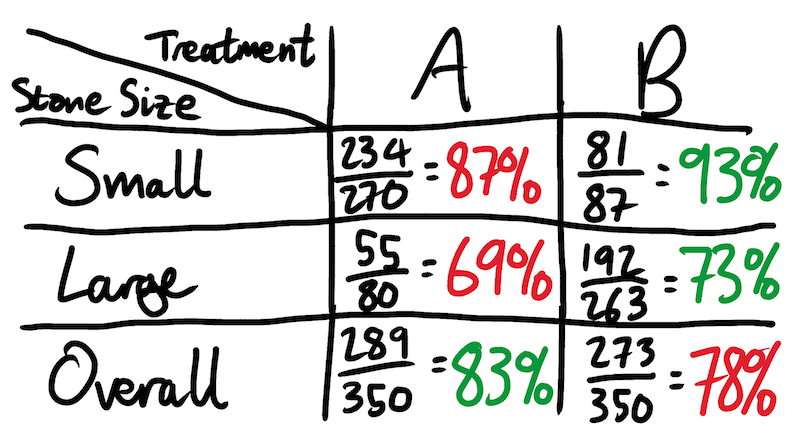 Treatment
Stone Size
A
B
Small
234/270 = 87%
81/87 = 93%
Large
55/80 = 69%
192/263 = 73%
Overall
289/350 = 83%
273/350 = 78%